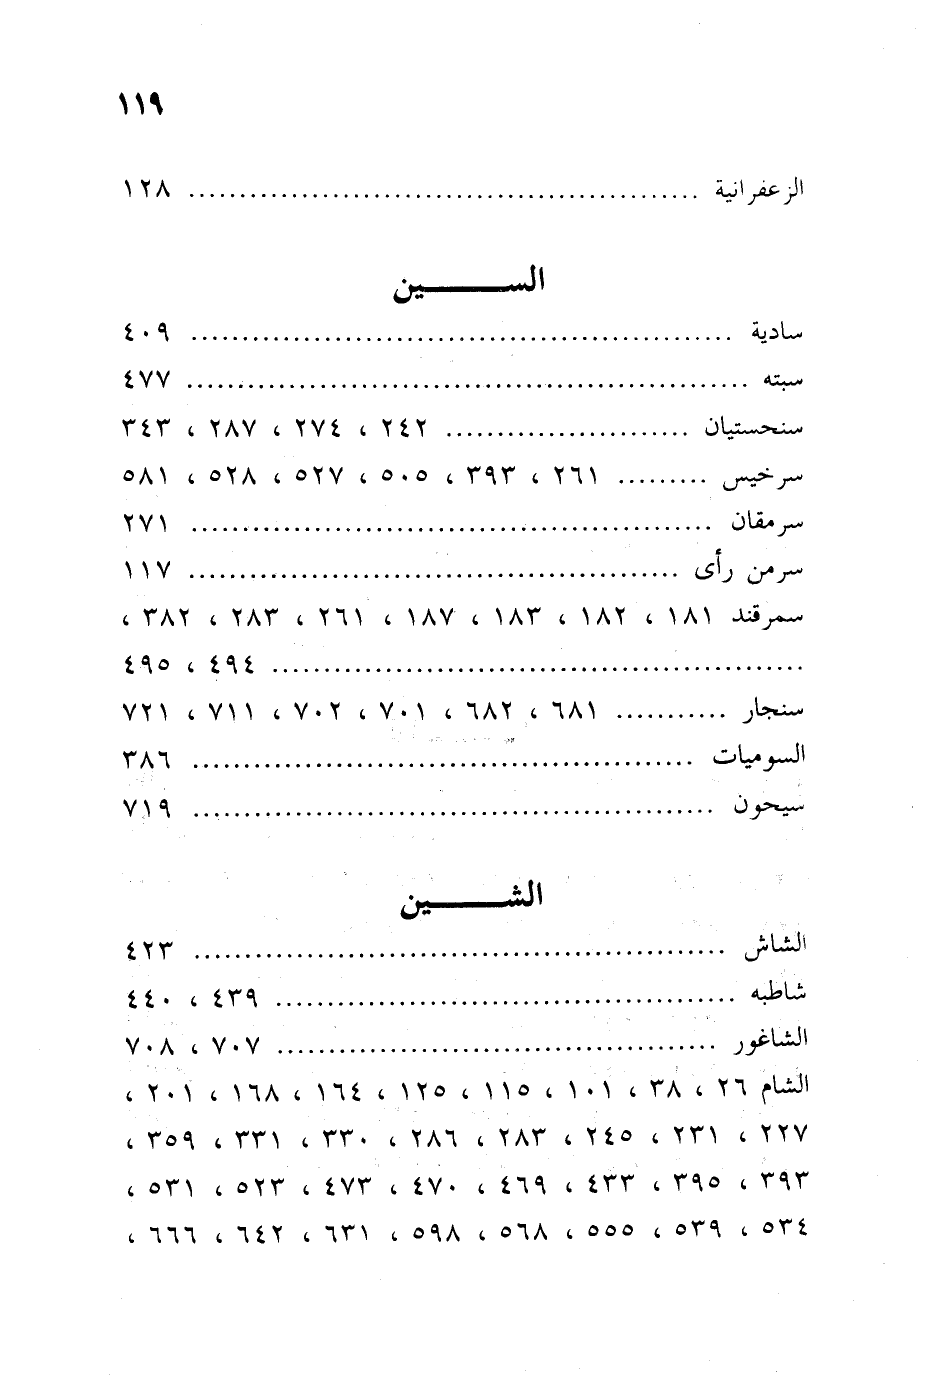 ١١٩
الزعفرانية ........ ١٢٨
الســـــين
سادية ........ ٤٠٩
سبته ........ ٤٧٧
سنحستيان ........ ٢٤٢ ، ٢٧٤ ، ٢٨٧ ، ٣٤٣
سرخيس ........ ٢٦١ ، ٣٩٣ ، ٥٠٥ ، ٥٢٧ ، ٥٢٨ ، ٥٨١
سرمقان ........ ٢٧١
سرمن رأى ........ ١١٧
سمرقند ١٨١ ، ١٨٢ ، ١٨٣ ، ١٨٧ ، ٢٦١ ، ٢٨٣ ، ٣٨٢ ،
........ ٤٩٤ ، ٤٩٥
سنجار ........ ٦٨١ ، ٦٨٢ ، ٧٠١ ، ٧٠٢ ، ٧١١ ، ٧٢١
السوميات ........ ٣٨٦
سيحون ........ ٧١٩
الشـــــين
الشاش ........ ٤٢٣
شاطبه ........ ٤٣٩ ، ٤٤٠
الشاغور ........ ٧٠٧ ، ٧٠٨
الشام ٢٦ ، ٣٨ ، ١٠١ ، ١١٥ ، ١٢٥ ، ١٦٤ ، ١٦٨ ، ٢٠١ ،
٢٢٧ ، ٢٣١ ، ٢٤٥ ، ٢٨٣ ، ٢٨٦ ، ٣٣٠ ، ٣٣١ ، ٣٥٩ ،
٣٩٣ ، ٣٩٥ ، ٤٣٣ ، ٤٦٩ ، ٤٧٠ ، ٤٧٣ ، ٥٢٣ ، ٥٣١ ،
٥٣٤ ، ٥٣٩ ، ٥٥٥ ، ٥٦٨ ، ٥٩٨ ، ٦٣١ ، ٦٤٢ ، ٦٦٦ ،